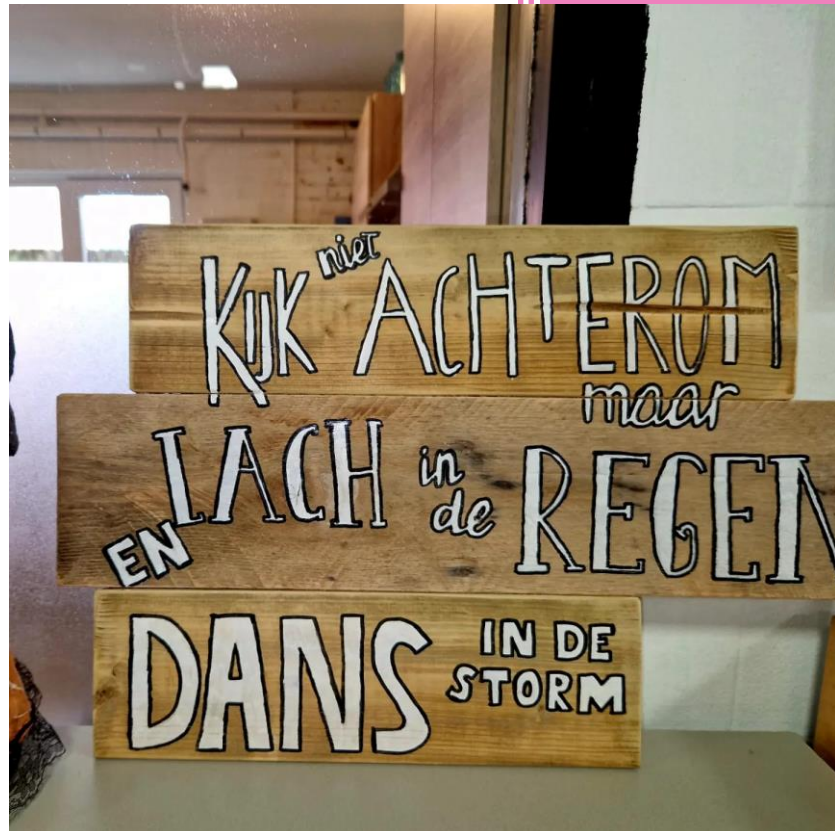 Kijk niet ACHTEROM
maar
LACH in de REGEN
EN
DANS IN DE STORM